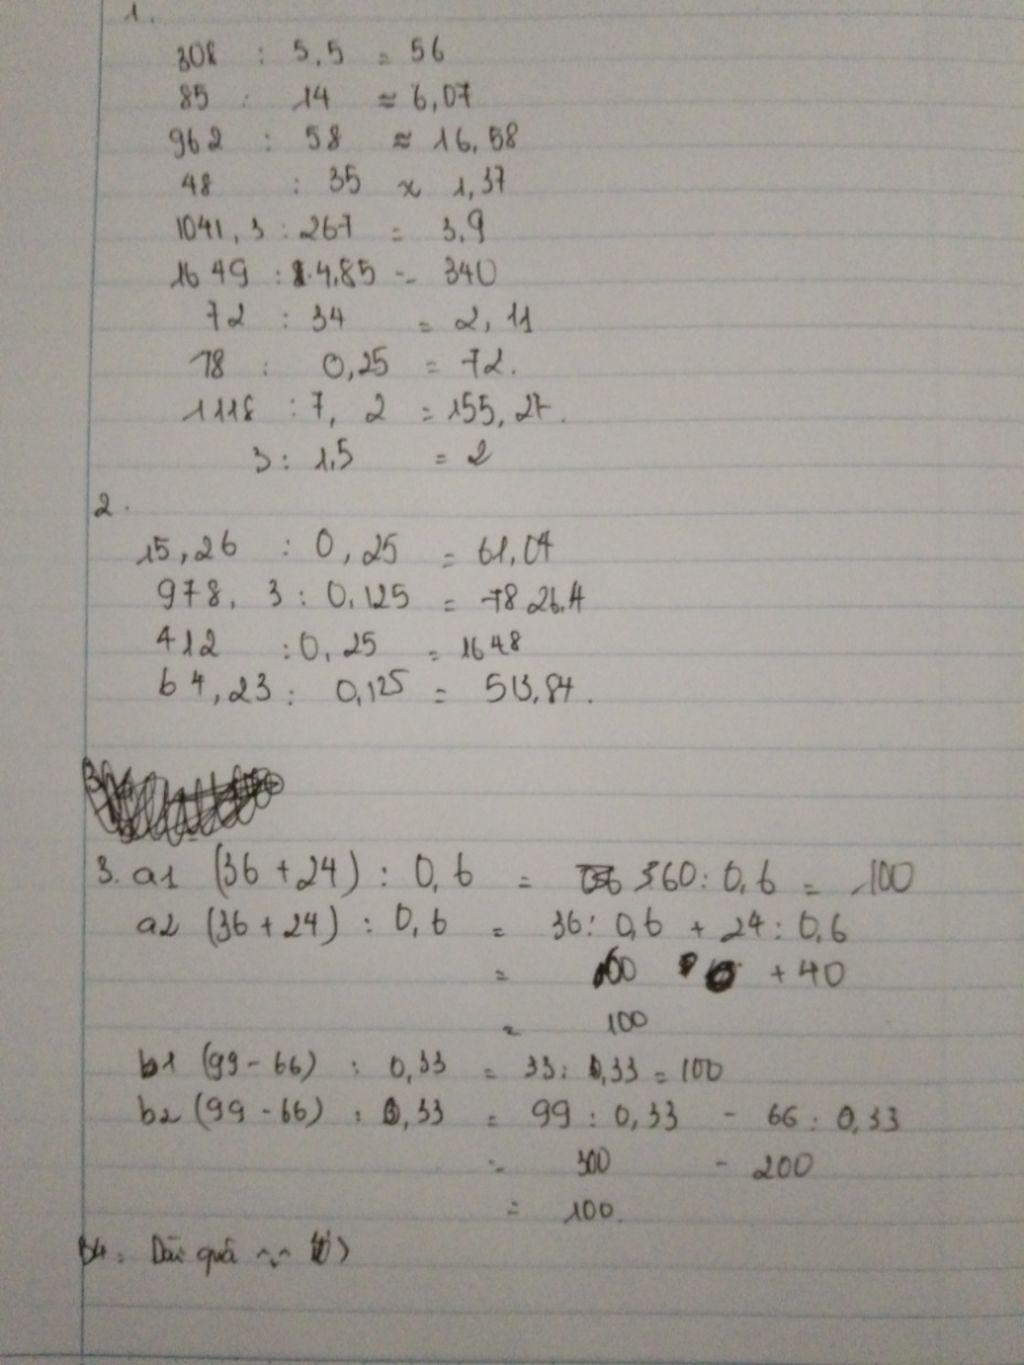 1.
308 : 5,5 = 56
85 : 14 ≈ 6,07
962 : 58 ≈ 16,58
48 : 35 ≈ 1,37
1041,3 : 267 = 3,9
1649 : 4,85 = 340
72 : 34 = 2,11
18 : 0,25 = 72.
1118 : 7,2 = 155,27.
3 : 1,5 = 2
2.
15,26 : 0,25 = 61,04
978,3 : 0,125 = 7826.4
412 : 0,25 = 1648
64,23 : 0,125 = 513,84.
3. a1 (36 + 24) : 0,6 = 60 : 0,6 = 100
a2 (36 + 24) : 0,6 = 36 : 0,6 + 24 : 0,6
= 60 + 40
= 100
b1 (99 - 66) : 0,33 = 33 : 0,33 = 100
b2 (99 - 66) : 0,33 = 99 : 0,33 - 66 : 0,33
= 300 - 200
= 100.
B4. Dài quá